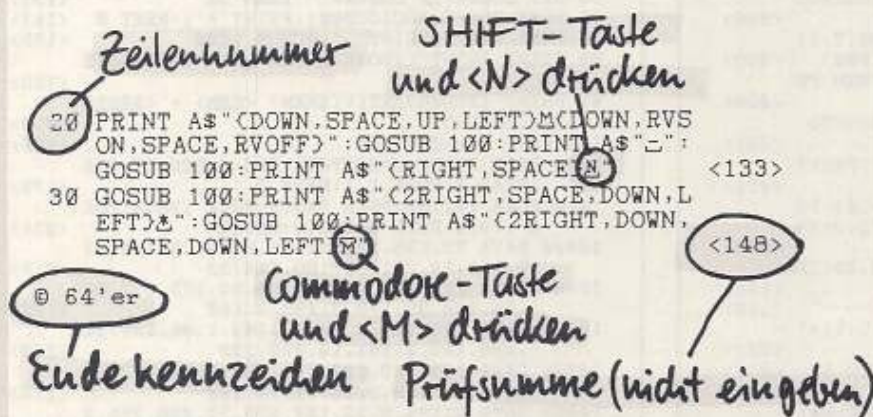 Zeilennummer
SHIFT-Taste
und <N> drücken
20 PRINT A$"{DOWN,SPACE,UP,LEFT}M{DOWN,RVS
ON,SPACE,RVOFF}":GOSUB 100:PRINT A$"_":
GOSUB 100:PRINT A$"{RIGHT,SPACE}N" <133>
30 GOSUB 100:PRINT A$"{2RIGHT,SPACE,DOWN,L
EFT}*":GOSUB 100:PRINT A$"{2RIGHT,DOWN,
SPACE,DOWN,LEFT}M" <148>
© 64'er
Commodore-Taste
und <M> drücken
Endekennzeichen
Prüfsumme (nicht eingeben)